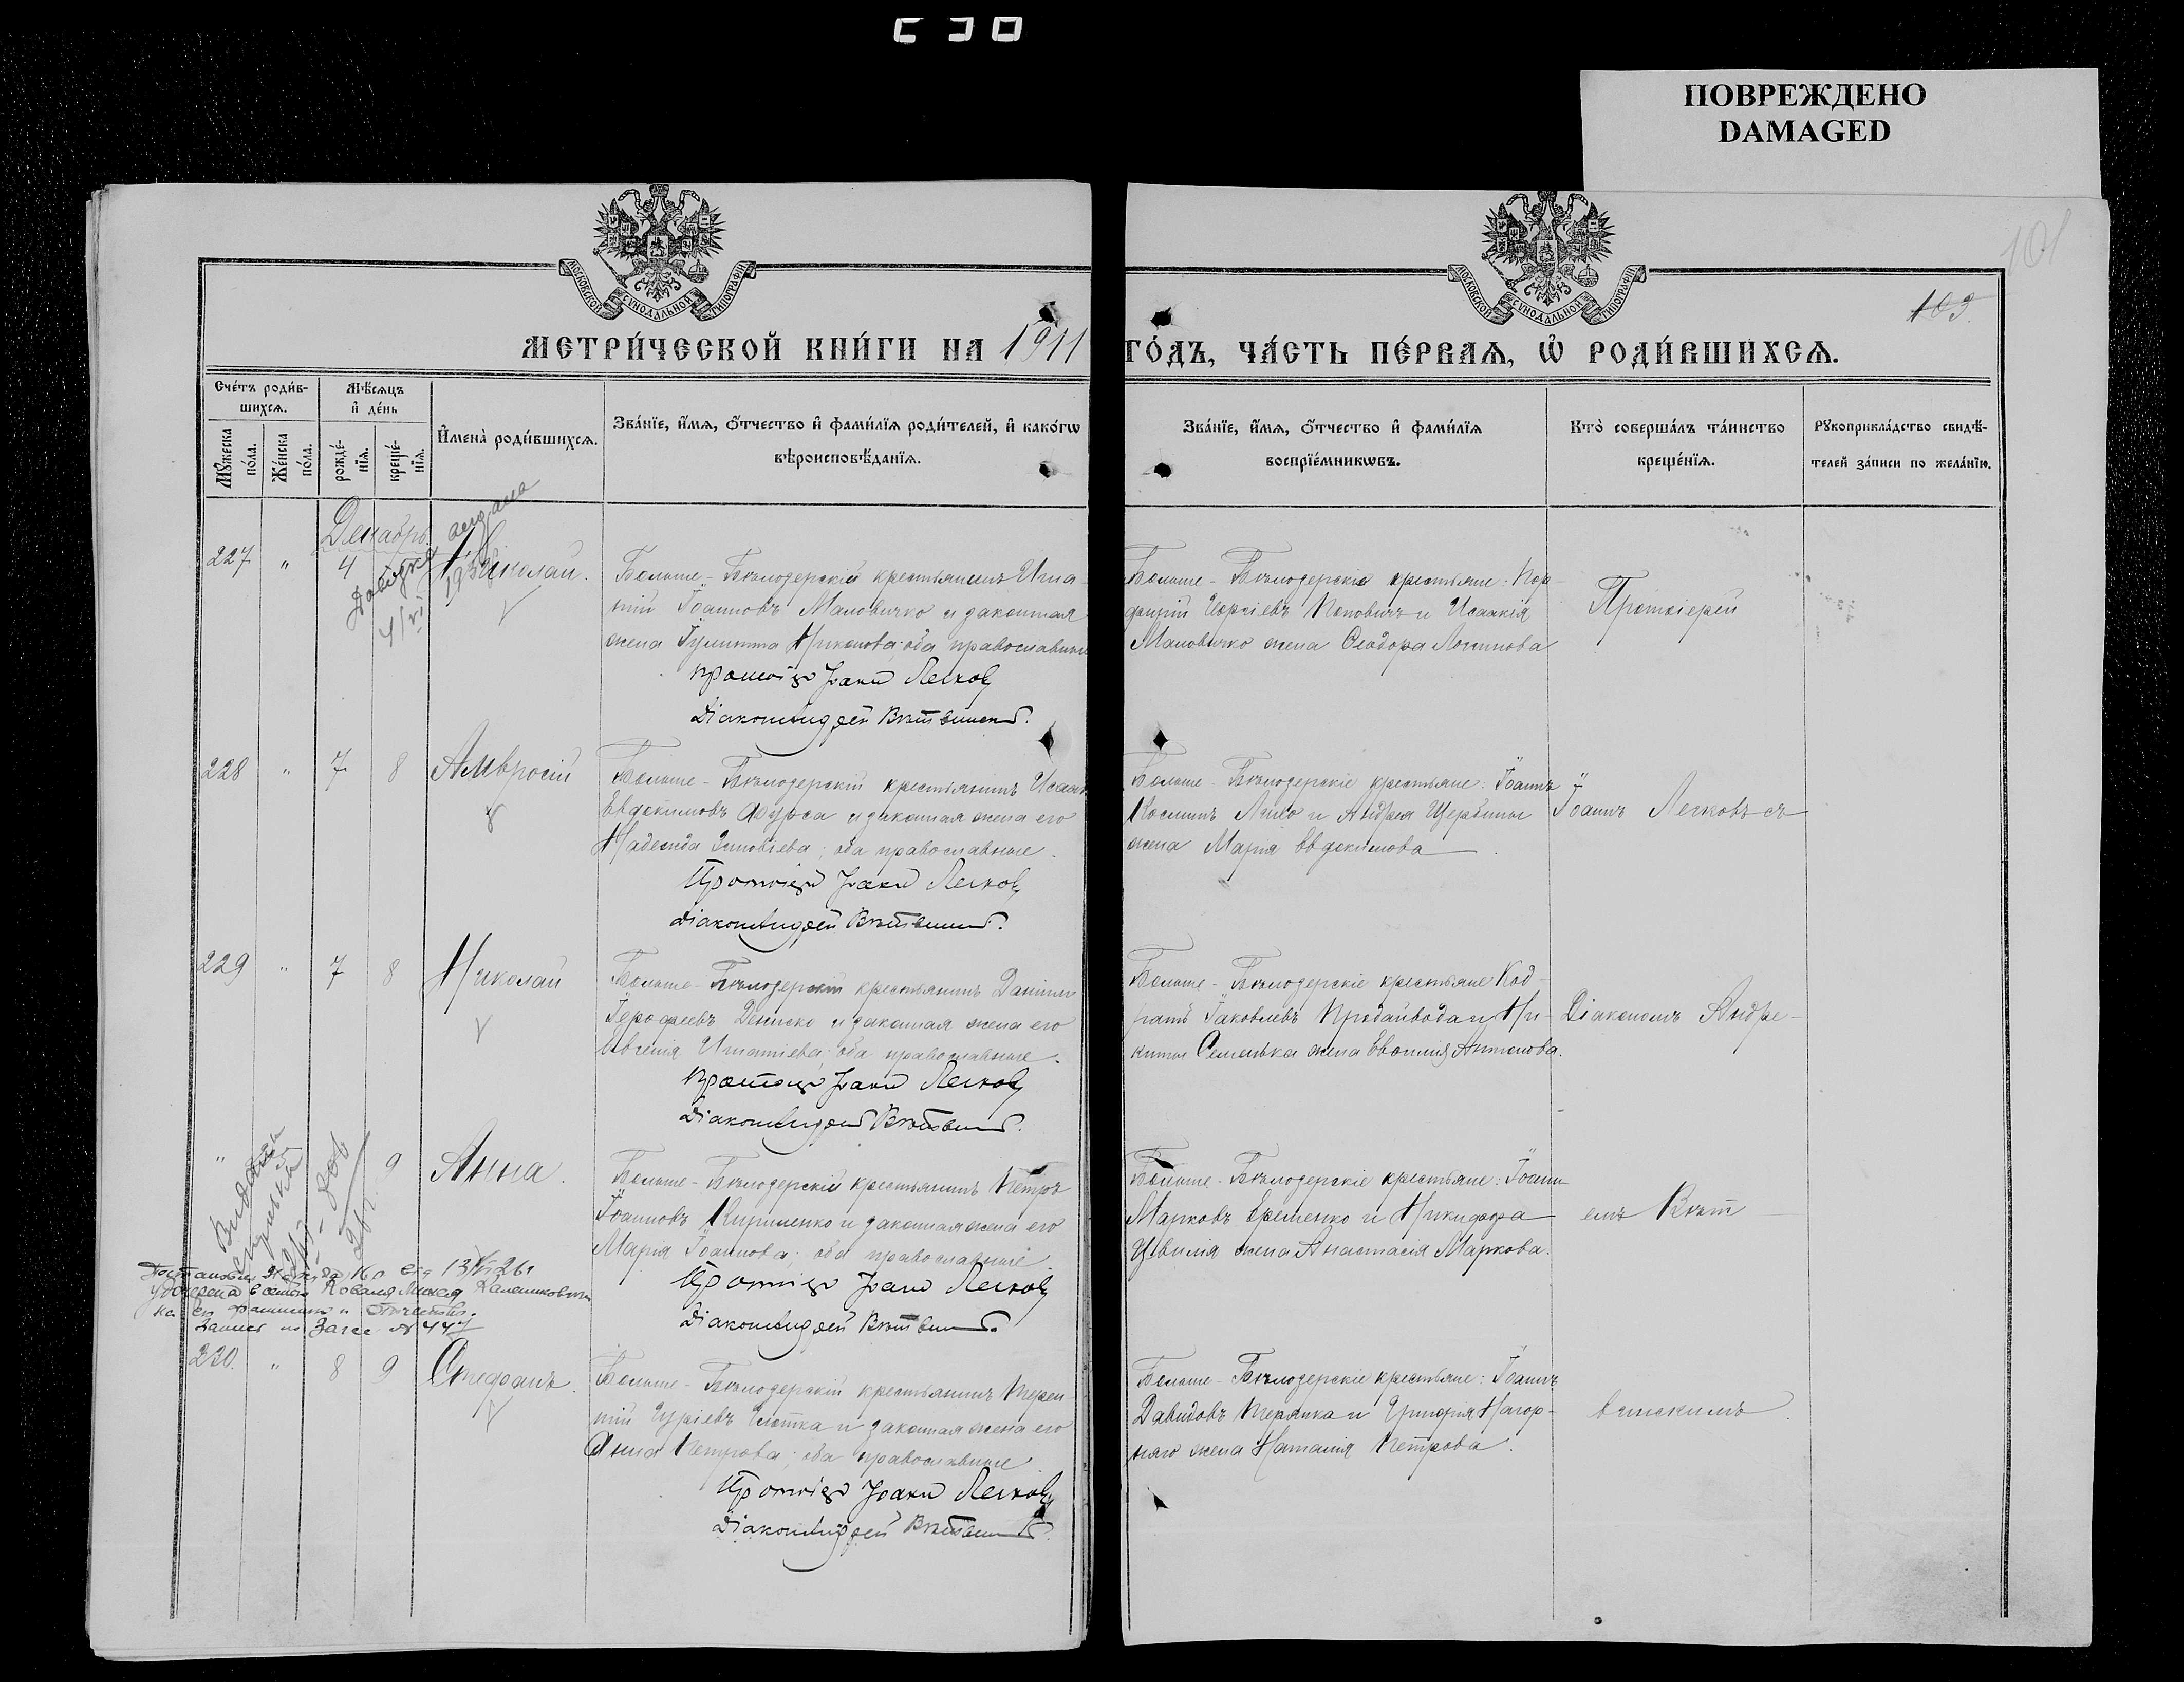 ПОВРЕЖДЕНО
DAMAGED
101
103.
МОСКОВСКОЙ СУНОДАЛЬНОЙ ТИПОГРАФІИ
МОСКОВСКОЙ СУНОДАЛЬНОЙ ТИПОГРАФІИ
МЕТРИ́ЧЕСКОЙ КНИ́ГИ НА 1911 ГО́ДЪ, ЧА́СТЬ ПЕ́РВАѦ, Ѡ҆ РОДИ́ВШИХСѦ.
Сче́тъ роди́в-
шихсѧ.
Мꙋ́жеска
по́ла.
Же́нска
по́ла.
Мѣ́сѧцъ
и҆ де́нь
рожде́-
нїѧ.
креще́-
нїѧ.
И҆мена̀ роди́вшихсѧ.
Зва́нїе, и҆́мѧ, ѻ҆́тчество и҆ фами́лїѧ роди́телей, и҆ како́гѡ
вѣроисповѣ́данїѧ.
Зва́нїе, и҆́мѧ, ѻ҆́тчество и҆ фами́лїѧ
воспрїе́мникѡвъ.
Кто̀ соверша́лъ та́инство
креще́нїѧ.
Рꙋкоприкла́дство свидѣ́-
телей за́писи по жела́нїю.
Декабрь
227 " 4 Николай.
Больше-Бѣлозерскій крестьянинъ Игна-
тій Іоанновъ Маловичко и законная
жена Іулитта Никонова; оба православные
Протоіер Іоанн Легков
Діаконъ Андрей Вѣтвинскій.
Больше-Бѣлозерскіе крестьяне: Пор-
фирій Поповичъ и Исаакія
Маловичко жена Ѳеодора Логинова
Протоіерей
228 " 7 8 Амвросій
Больше-Бѣлозерскій крестьянинъ Исаак
Евдокимовъ Фурса и законная жена его
Надежда Зиновіева; оба православные.
Протоіер Іоанн Легков
Діаконъ Андрей Вѣтвинскій.
Больше-Бѣлозерскіе крестьяне: Іоаннъ
Косминъ и Андрея Щербины
жена Марія Евдокимова
Іоаннъ Легковъ съ
229 " 7 8 Николай
Больше-Бѣлозерскій крестьянинъ Даніилъ
Іероѳеевъ Дениско и законная жена его
Евгенія Игнатіева; оба православные.
Протоіер Іоанн Легков
Діаконъ Андрей Вѣтвинскій.
Больше-Бѣлозерскіе крестьяне Код-
ратъ Іаковлевъ Продайвода и Ни-
киты Семенька жена Евѳимія Антонова.
Діакономъ Андре-
" 9 Анна.
Больше-Бѣлозерскій крестьянинъ Петръ
Іоанновъ Кириленко и законная жена его
Марія Іоаннова; оба православные.
Протоіер Іоанн Легков
Діаконъ Андрей Вѣтвинскій.
Больше-Бѣлозерскіе крестьяне: Іоаннъ
Марковъ Еременко и Никифора
Цвилія жена Анастасія Маркова.
емъ Вѣт
230. " 8 9 Стефанъ.
Больше-Бѣлозерскій крестьянинъ Терен-
тій Гуріевъ и законная жена его
Анна Петрова; оба православные.
Протоіер Іоанн Легков
Діаконъ Андрей Вѣтвинскій.
Больше-Бѣлозерскіе крестьяне: Іоаннъ
Давидовъ и Григорія Нагор-
няго жена Наталія Петрова.
винскимъ.